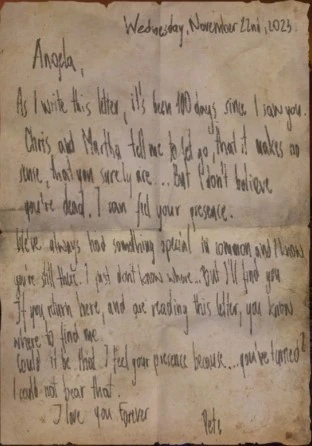 Wednesday, November 22nd, 2023
Angela,
As I write this letter, it's been 100 days since I saw you.
Chris and Martha tell me to let go, that it makes no
sense, that you surely are... But I don't believe
you're dead. I can feel your presence.
We've always had something special in common, and I know
you're still there. I just don't know where... But I'll find you
If you return here, and are reading this letter, you know
where to find me.
Could it be that I feel your presence because... you've turned?
I could not bear that.
I love you Forever
Pete